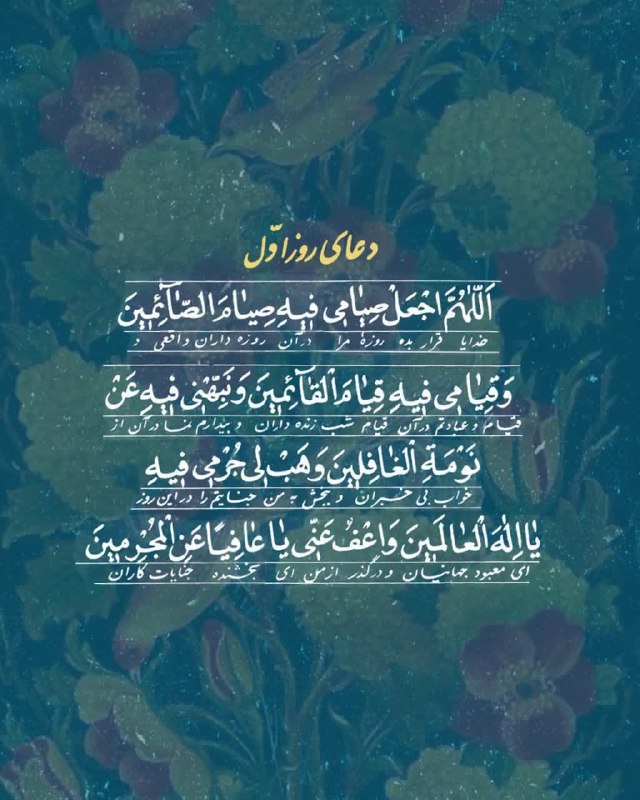 دعای روز اوّل
اَللّٰهُمَّ اجْعَلْ صِيٰامى فيهِ صِيٰامَ الصّٰآئِمينَ
خدایا قرار بده روزهٔ مرا در آن روزه داران واقعی و
وَقِيٰامى فيهِ قِيٰامَ الْقٰآئِمينَ وَنَبِّهْنى فيهِ عَنْ
قیام و عبادتم در آن قیام شب زنده داران و بیدارم نما در آن از
نَوْمَةِ الْغٰافِلينَ وَهَبْ لى جُرْمى فيهِ
خواب بی خبران و ببخش به من جنایتم را در این روز
يٰا اِلٰهَ الْعٰالَمينَ وَاعْفُ عَنّى يٰا عٰافِيًا عَنِ الْمُجْرِمينَ
ای معبود جهانیان و درگذر از من ای بخشنده جنایات کاران